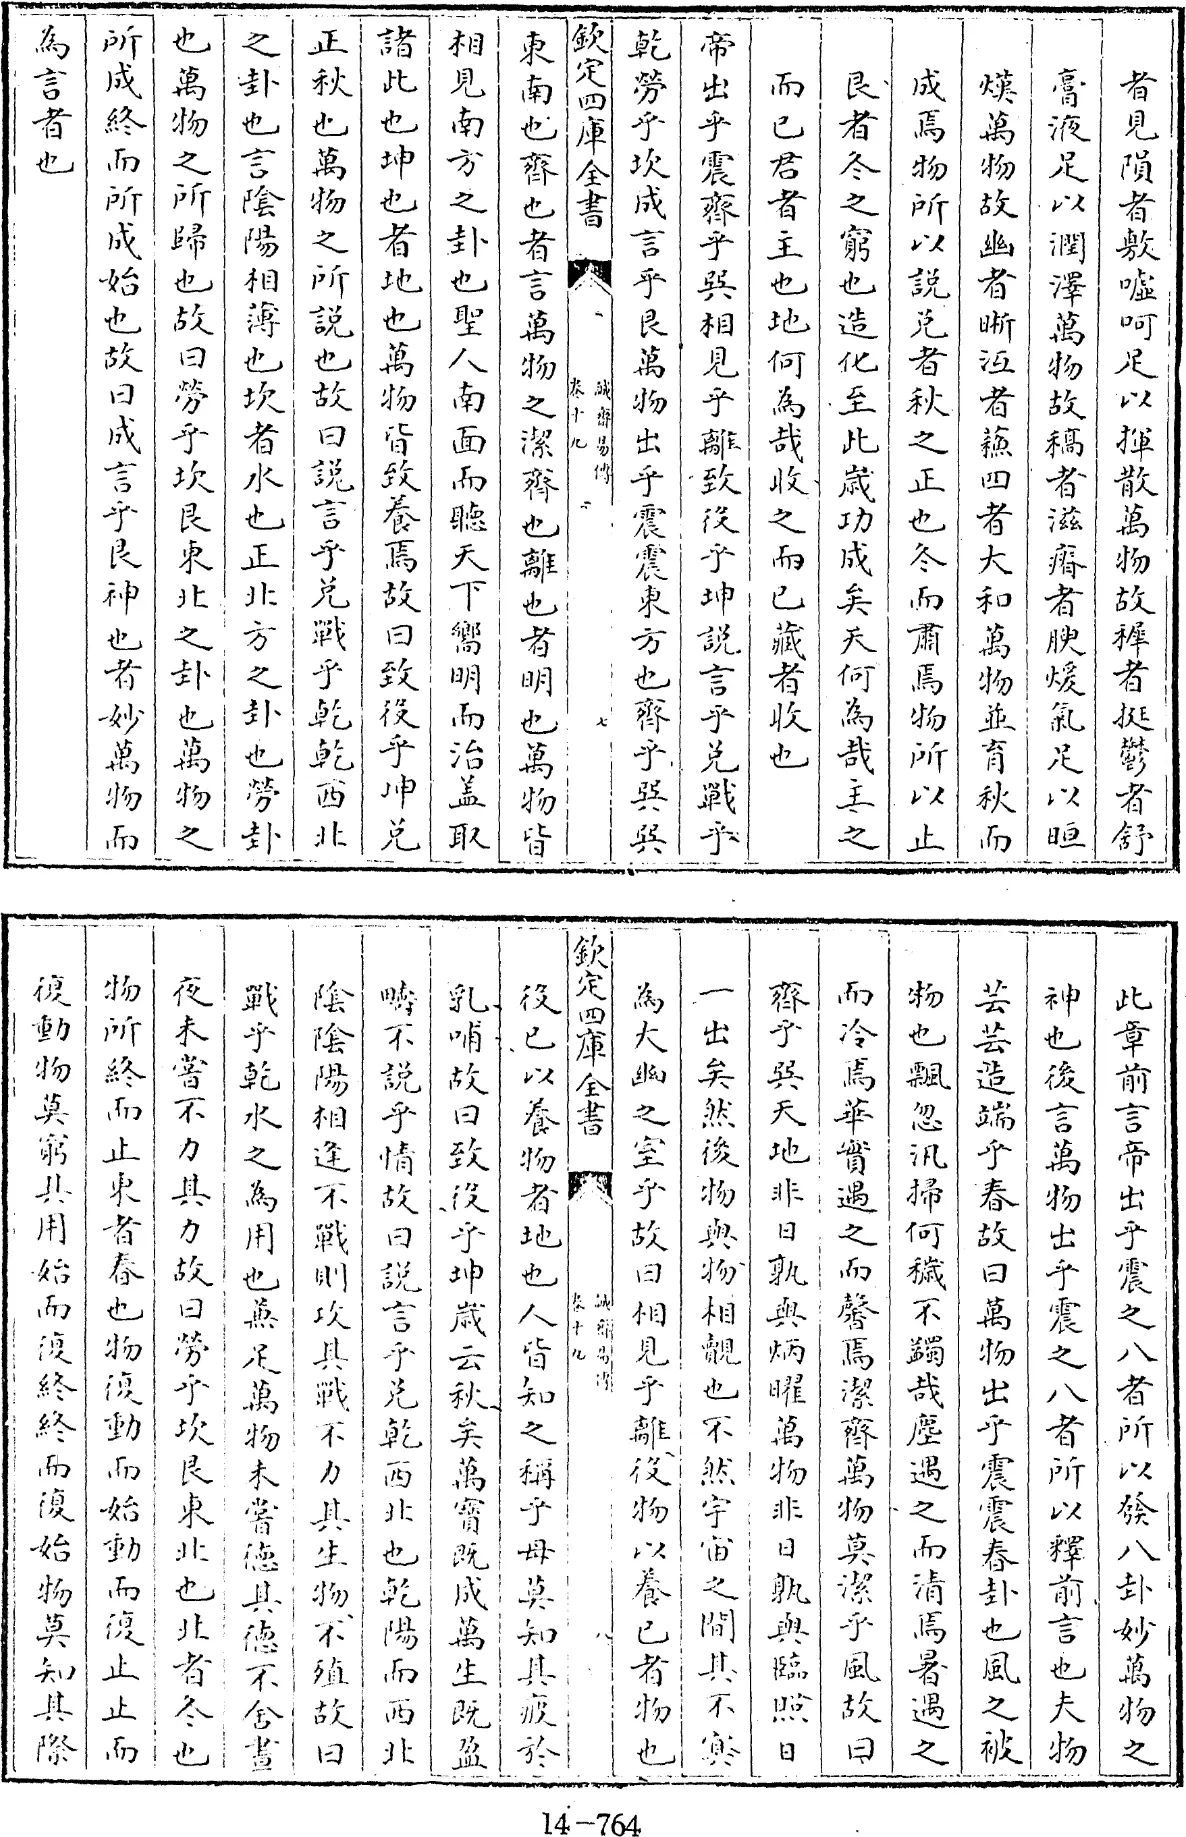 者見隕者敷噓呵足以揮散萬物故穉者挺鬱者舒
膏液足以潤澤萬物故稿者滋瘠者腴煖氣足以晅
熯萬物故幽者晰沍者蘓四者大和萬物並育秋而
成焉物所以說兊者秋之正也冬而肅焉物所以止
艮者冬之窮也造化至此歲功成矣天何為哉主之
而已君者主也地何為哉收之而已藏者收也
帝出乎震齊乎巽相見乎離致役乎坤說言乎兊戰乎
乾勞乎坎成言乎艮萬物出乎震震東方也齊乎巽巽
欽定四庫全書
誠齋易傳
卷十九
七
東南也齊也者言萬物之潔齊也離也者明也萬物皆
相見南方之卦也聖人南面而聽天下嚮明而治盖取
諸此也坤也者地也萬物皆致養焉故曰致役乎坤兊
正秋也萬物之所說也故曰說言乎兊戰乎乾乾西北
之卦也言陰陽相薄也坎者水也正北方之卦也勞卦
也萬物之所歸也故曰勞乎坎艮東北之卦也萬物之
所成終而所成始也故曰成言乎艮神也者妙萬物而
為言者也
此章前言帝出乎震之八者所以發八卦妙萬物之
神也後言萬物出乎震之八者所以釋前言也夫物
芸芸造端乎春故曰萬物出乎震震春卦也風之被
物也飄忽汛掃何穢不蠲哉塵遇之而清焉暑遇之
而冷焉華實遇之而馨焉潔齊萬物莫潔乎風故曰
齊乎巽天地非日孰與炳曜萬物非日孰與臨照日
一出矣然後物與物相覿也不然宇宙之間其不寘
為大幽之室乎故曰相見乎離役物以養已者物也
欽定四庫全書
誠齋易傳
卷十九
八
役已以養物者地也人皆知之稱乎母莫知其疲於
乳哺故曰致役乎坤歲云秋矣萬寶既成萬生既盈
疇不說乎情故曰說言乎兊乾西北也乾陽而西北
陰陰陽相逢不戰則攻其戰不力其生物不殖故曰
戰乎乾水之為用也無足萬物未嘗德其德不舍晝
夜未嘗不力其力故曰勞乎坎艮東北也北者冬也
物所終而止東者春也物復動而始動而復止止而
復動物莫窮其用始而復終終而復始物莫知其際
14-764